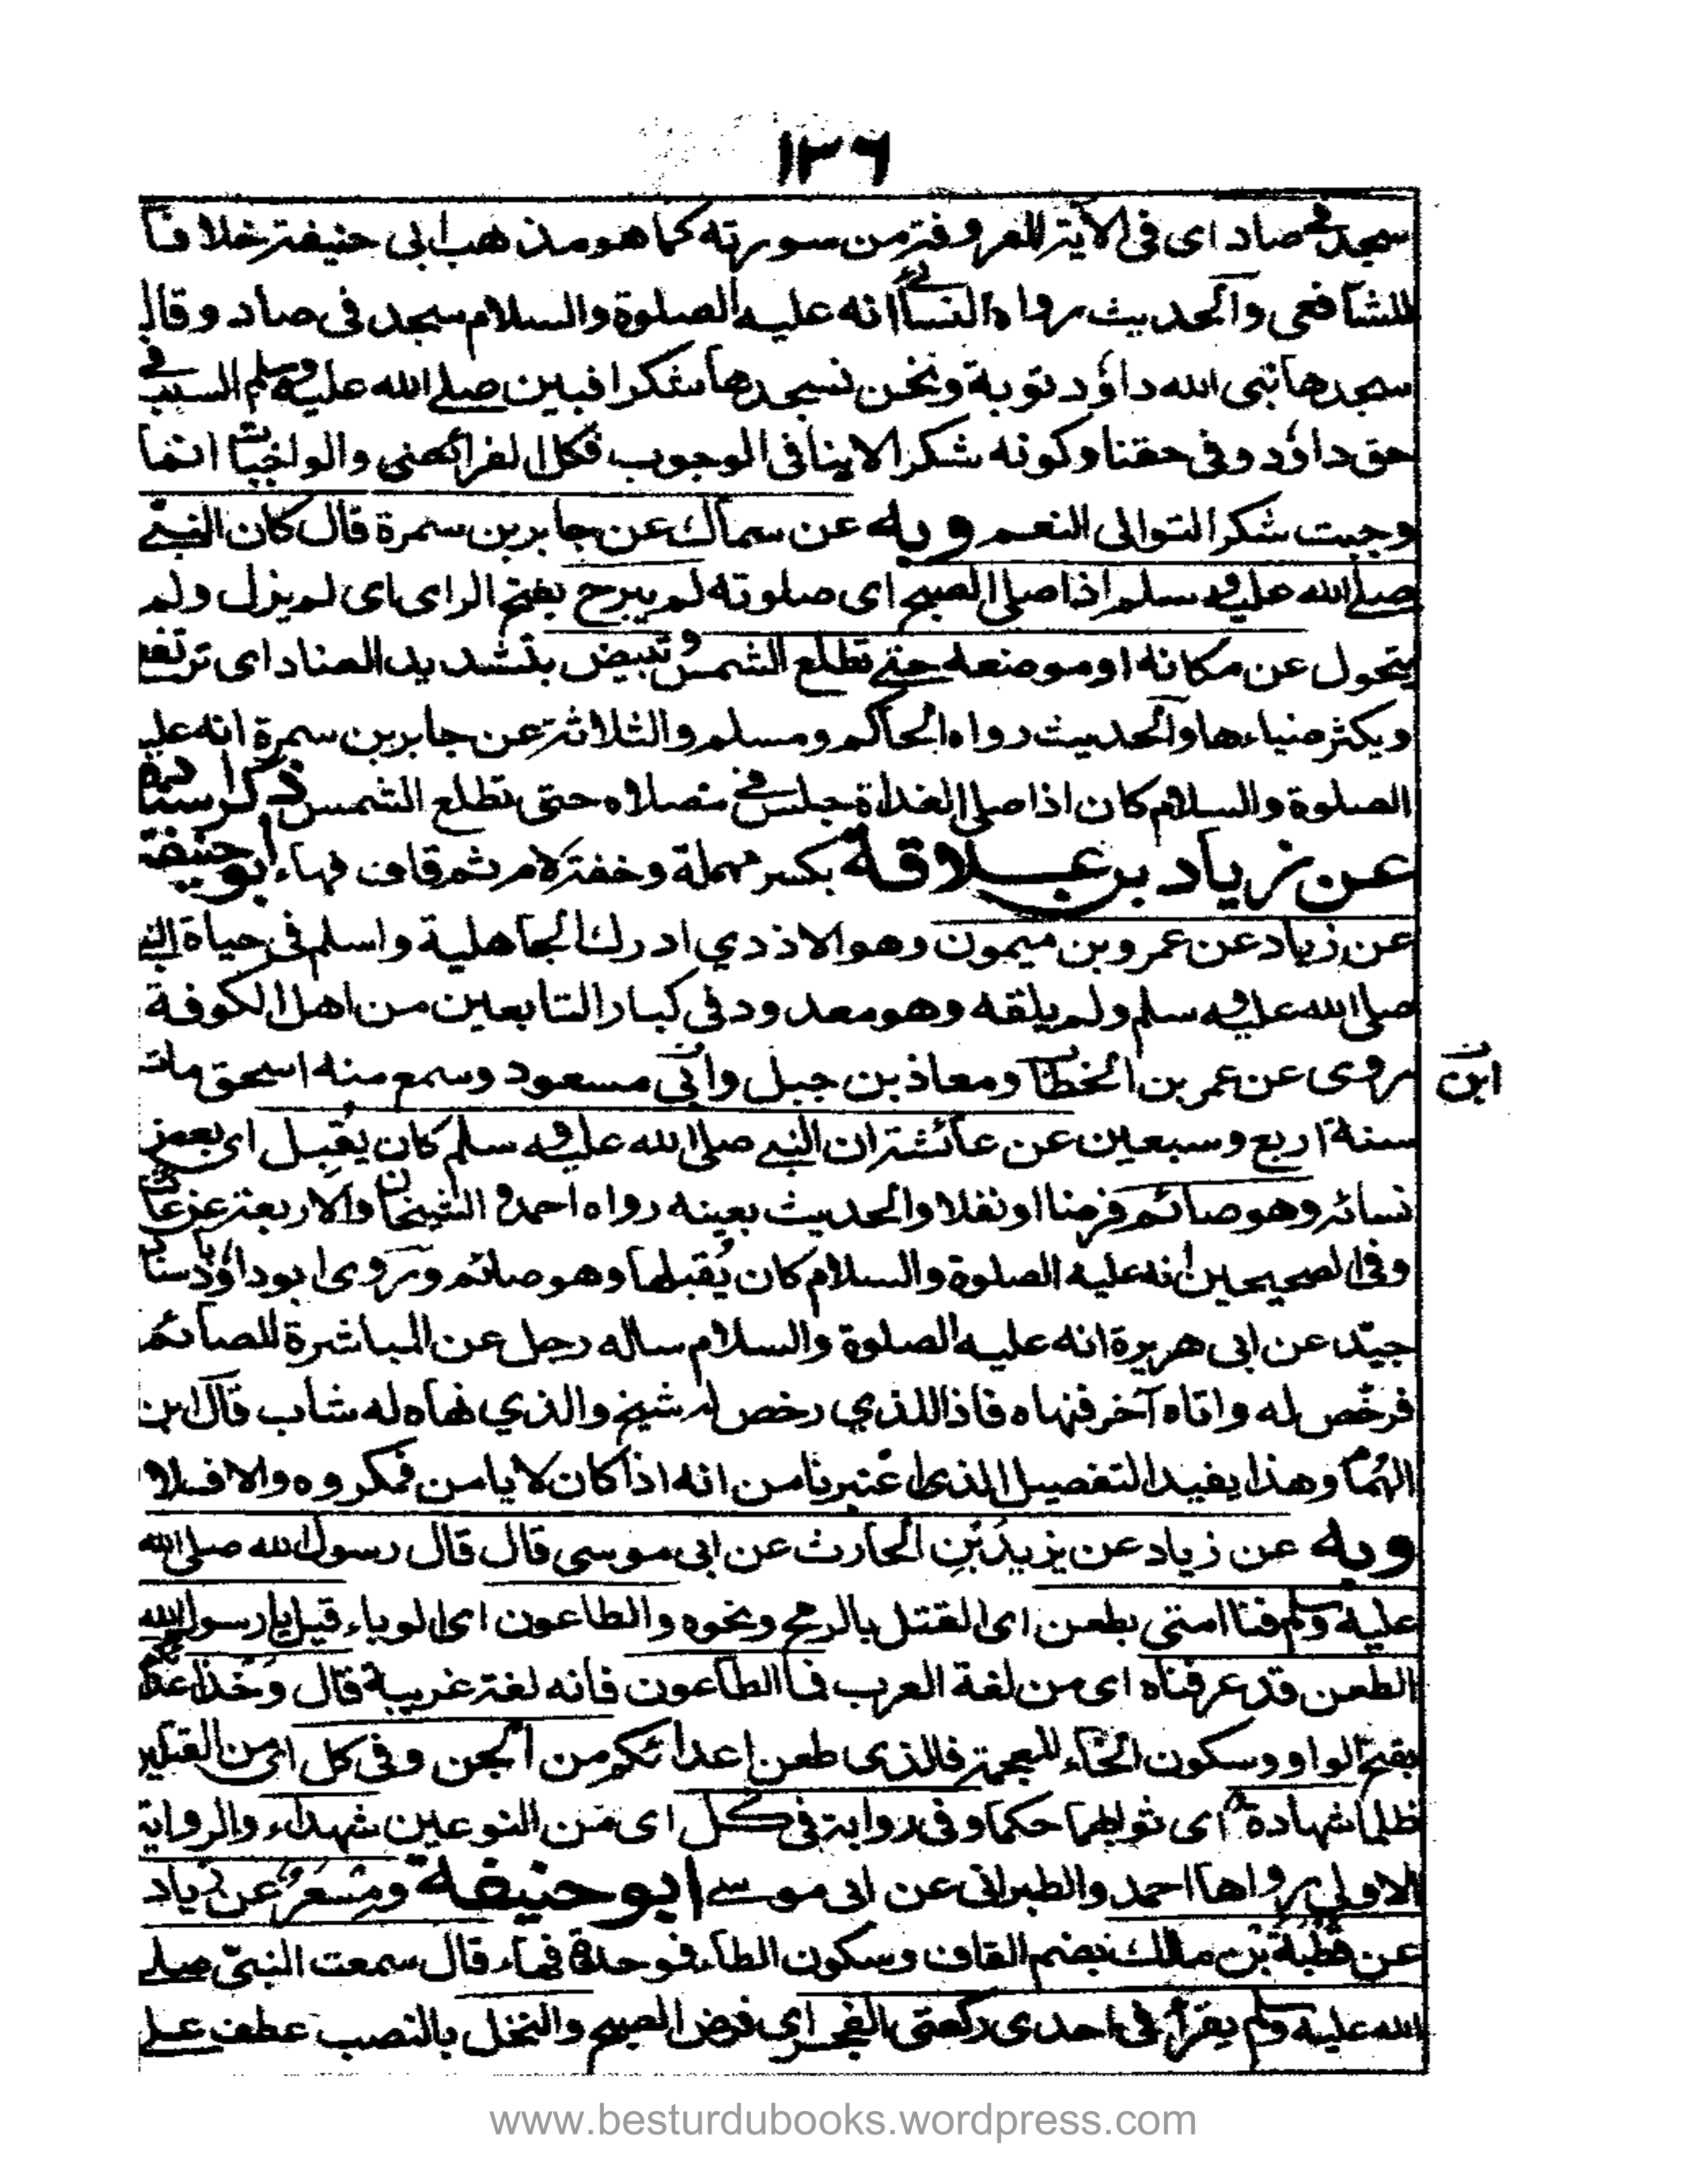 ١٣٦
سجد في صاد اى فى الآية المعروفة من سورته كما هو مذهب ابى حنيفة خلافا
للشافعى والحديث رواه النسائى انه عليه الصلوة والسلام سجد فى صاد وقال
سجدها نبى الله داؤد توبة ونحن نسجدها شكرا فبين صلى الله عليه وسلم السبب في
حق داؤد وفى حقنا وكونه شكرا لا ينافى الوجوب فكل الفرائض والواجبات انما
وجبت شكرا لتوالى النعم وبه عن سماك عن جابر بن سمرة قال كان النبي
صلى الله عليه وسلم اذا صلى الصبح اى صلوته لم يبرح بفتح الراى اى لم يزل ولم
يتحول عن مكانه او موضعه حتى تطلع الشمس وتبيض بتشديد الضاد اى ترتفع
ويكثر ضياءها والحديث رواه الحاكم ومسلم والثلاثة عن جابر بن سمرة انه عليه
الصلوة والسلام كان اذا صلى الغداة جلس في مصلاه حتى تطلع الشمس ذكر اسناده
عن زياد بن علاقة بكسر مهملة وخفة لام ثم قاف فهاء ابو حنيفة
عن زياد عن عمرو بن ميمون وهو الاذدي ادرك الجاهلية واسلم فى حياة النبي
صلى الله عليه وسلم ولم يلقه وهو معدود فى كبار التابعين من اهل الكوفة
روى عن عمر بن الخطاب ومعاذ بن جبل وابي مسعود وسمع منه اسحق مات
ابن
سنة اربع وسبعين عن عائشة ان النبي صلى الله عليه وسلم كان يُقبِل اى بعض
نسائه وهو صائم فرضا او نفلا والحديث بعينه رواه احمد والشيخان والاربعة عن عائشة
وفى الصحيحين انه عليه الصلوة والسلام كان يُقبلها وهو صائم وروى ابو داؤد باسناد
جيّد عن ابى هريرة انه عليه الصلوة والسلام ساله رجل عن المباشرة للصائم
فرخّص له واتاه آخر فنهاه فاذا الذي رخص له شيخ والذي نهاه له شاب قال ابن
الهمام وهذا يفيد التفصيل الذى اعتبرنا من انه اذا كان لا يامن فمكروه والا فلا
وبه عن زياد عن يزيد بن الحارث عن ابى موسى قال قال رسول الله صلى الله
عليه وسلم فنا امتى بطعن اى القتل بالرمح ونحوه والطاعون اى الوباء قيل يا رسول الله
الطعن قد عرفناه اى من لغة العرب فما الطاعون فانه لغة غريبة قال وخذ اعدائكم
بفتح الواو وسكون الخاء المعجمة فالذى طعن اعدائكم من الجن وفى كل اى من القتيلين
ظلما شهادة اى ثوابهما حكما وفى رواية فى كل اى من النوعين شهداء والرواية
الاولى رواها احمد والطبرانى عن ابى موسى ابو حنيفة ومِسْعَر عن زياد
عن قُطبَة بن مالك بضم القاف وسكون الطاء فوحدة فهاء قال سمعت النبىّ صلى
الله عليه وسلم يقرأ فى احدى ركعتى الفجر اى فرض الصبح والنخل بالنصب عطف على
www.besturdubooks.wordpress.com